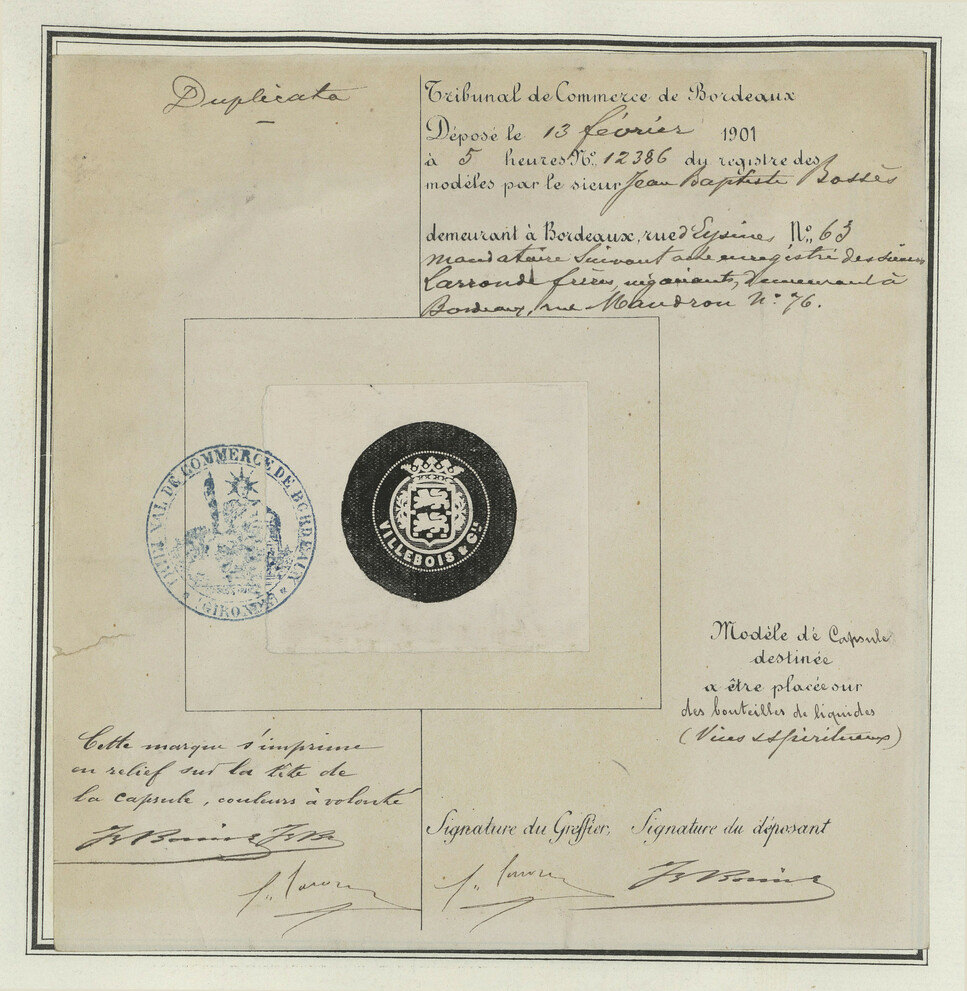 Duplicata
Tribunal de Commerce de Bordeaux
Déposé le 13 février 1901
à 5 heures. N° 12386 du registre des
modèles par le sieur Jean Baptiste
demeurant à Bordeaux, rue d'Eysines N° 63
mandataire suivant acte enregistré des sieurs
Larronde frères, négociants, demeurant à
Bordeaux, rue Mandron N° 76.
TRIBUNAL DE COMMERCE DE BORDEAUX
(GIRONDE)
VILLEBOIS & Cie
Modèle de Capsule
destinée
a être placée sur
des bouteilles de liquides
(Vins & Spiritueux)
Cette marque s'imprime
en relief sur la tête de
la capsule, couleurs à volonté
Signature du Greffier, Signature du déposant